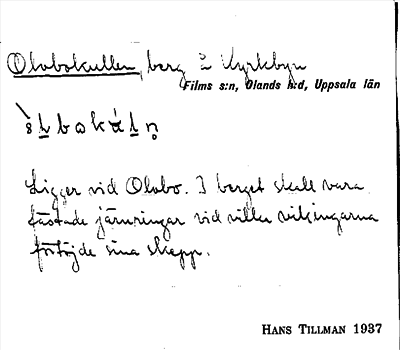 Olobokullen, berg å Kyrkbyn
Films s:n, Olands h:d, Uppsala län
Ligger vid Olobo. I berget skall vara
fästade järnringar vid vilka vikingarna
förtöjde sina skepp.
HANS TILLMAN 1937